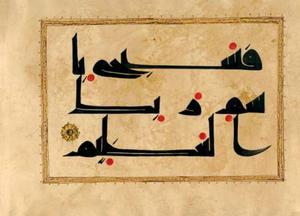 فسبح با
سم ربك
العظيم